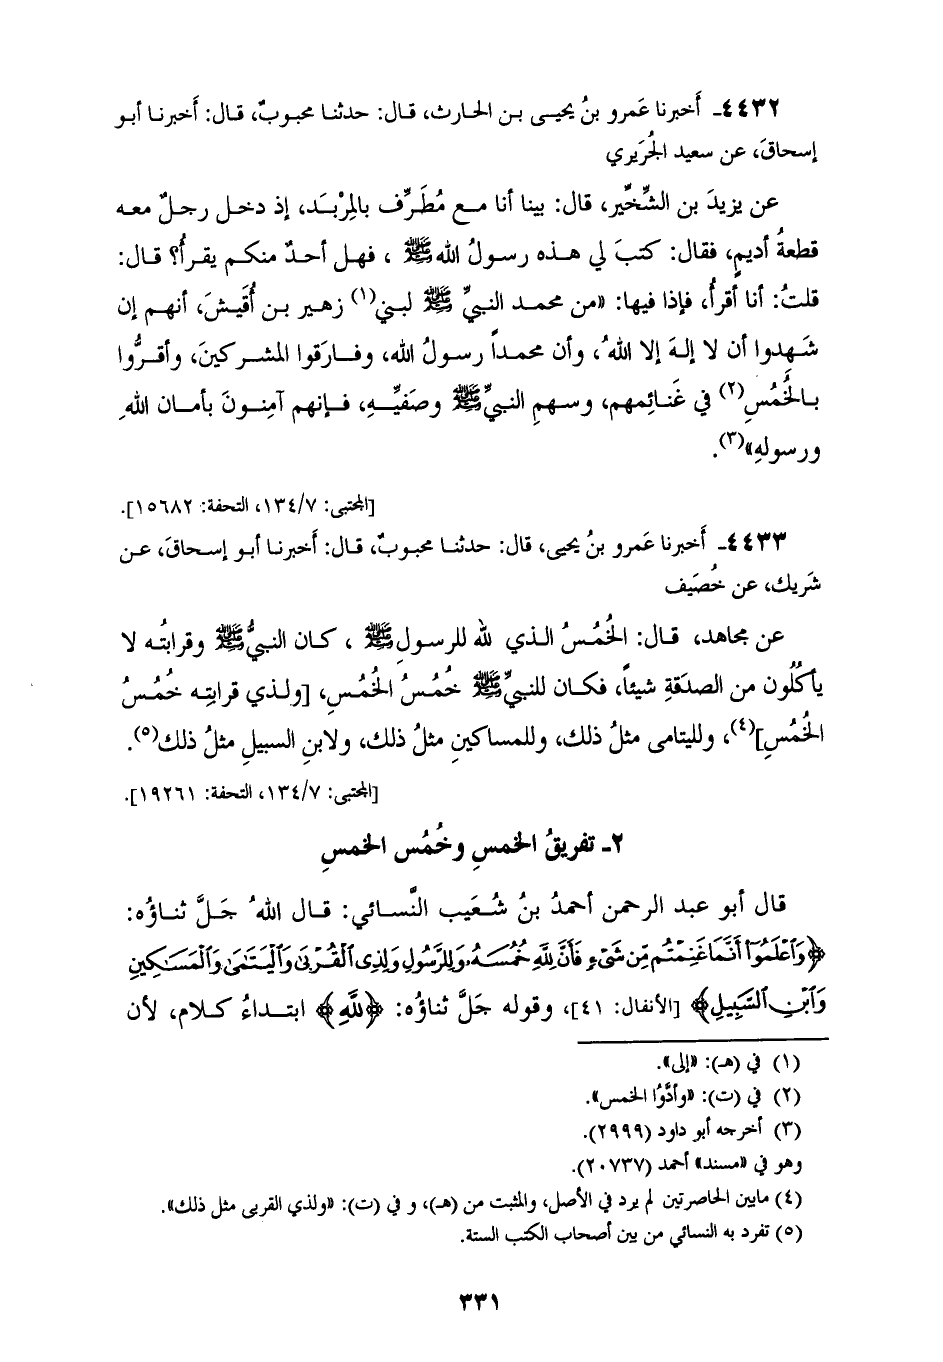 ٤٤٣٢ـ أَخبرنا عَمرو بنُ يحيى بن الحارث، قال: حدثنا محبوبٌ، قال: أَخبرنا أبو
إسحاقَ، عن سعيد الجُرَيري
عن يزيدَ بن الشِّخِّير، قال: بينا أنا مع مُطَرِّف بالمِرْبَد، إذ دخل رجلٌ معه
قطعةُ أديمٍ، فقال: كتبَ لي هذه رسولُ اللهﷺ ، فهل أحدٌ منكم يقرأُ؟ قال:
قلتُ: أنا أقرأُ، فإذا فيها: «من محمد النبيِّ ﷺ لبني(١) زهير بن أُقَيشَ، أنهم إن
شَهدوا أن لا إلهَ إلا اللهُ، وأن محمداً رسولُ الله، وفارَقوا المشركينَ، وأقرُّوا
بالخُمُسِ(٢) في غَنائِمهم، وسهمِ النبيِّﷺ وصَفيِّهِ، فإنهم آمِنونَ بأمان اللهِ
ورسولهِ»(٣).
[المجتبى: ١٣٤/٧، التحفة: ١٥٦٨٢].
٤٤٣٣ـ أَخبرنا عَمرو بنُ يحيى، قال: حدثنا محبوبٌ، قال: أَخبرنا أبو إسحاقَ، عن
شَريك، عن خُصَيف
عن مجاهد، قال: الخُمُسُ الذي لله للرسولِﷺ ، كان النبيُّﷺ وقرابتُه لا
يأكُلُون من الصدَقةِ شيئاً، فكان للنبيِّﷺ خُمُسُ الخُمُسِ، [ولذي قرابتِه خُمُسُ
الخُمُسِ](٤)، ولليتامى مثلُ ذلك، وللمساكينِ مثلُ ذلك، ولابنِ السبيلِ مثلُ ذلك(٥).
[المجتبى: ١٣٤/٧، التحفة: ١٩٢٦١].
٢ـ تفريقُ الخمسِ وخُمُس الخمسِ
قال أبو عبد الرحمن أحمدُ بنُ شُعَيب النَّسائي: قال اللهُ جَلَّ ثناؤُه:
﴿وَٱعْلَمُوٓا۟ أَنَّمَا غَنِمْتُم مِّن شَىْءٍ فَأَنَّ لِلَّهِ خُمُسَهُۥ وَلِلرَّسُولِ وَلِذِى ٱلْقُرْبَىٰ وَٱلْيَتَٰمَىٰ وَٱلْمَسَٰكِينِ
وَٱبْنِ ٱلسَّبِيلِ﴾ [الأنفال: ٤١]، وقوله جَلَّ ثناؤُه: ﴿لِلَّهِ﴾ ابتداءُ كلام، لأن
(١) في (هـ): «إلى».
(٢) في (ت): «وأدَّوُا الخمس».
(٣) أخرجه أبو داود (٢٩٩٩).
وهو في «مسند» أحمد (٢٠٧٣٧).
(٤) مابين الحاصرتين لم يرد في الأصل، والمثبت من (هـ)، و في (ت): «ولذي القربى مثل ذلك».
(٥) تفرد به النسائي من بين أصحاب الكتب الستة.
٣٣١